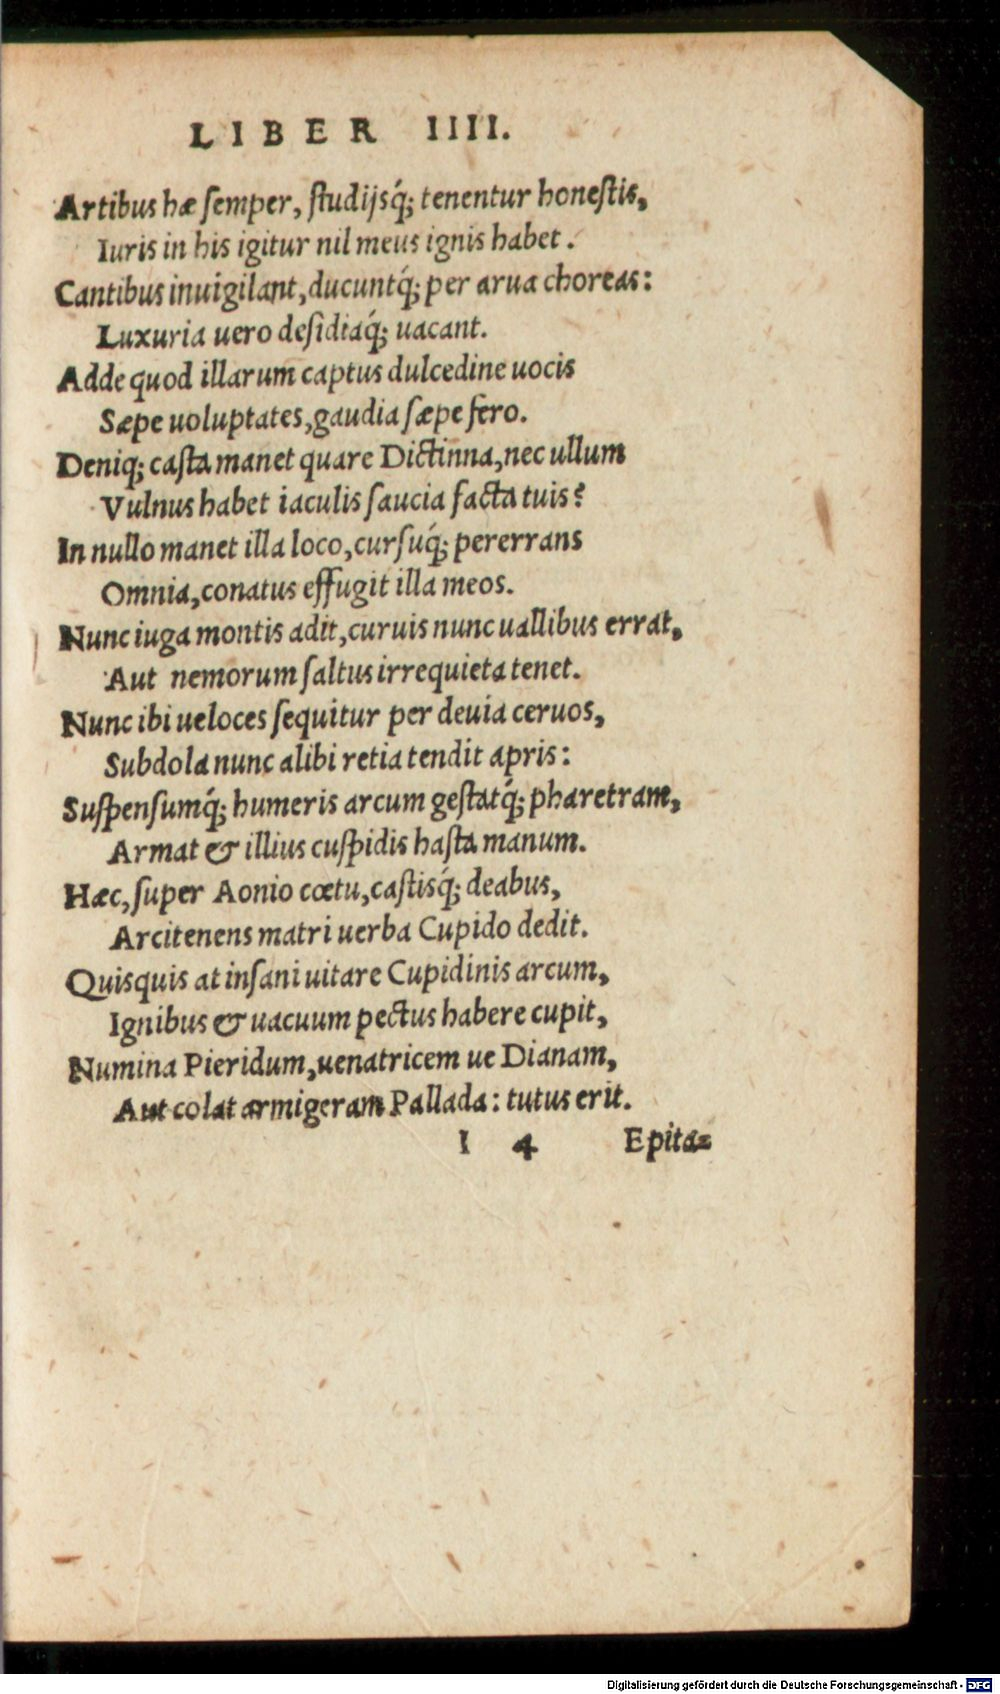 LIBER IIII.
Artibus hæ semper, studijsq́; tenentur honestis,
Iuris in his igitur nil meus ignis habet.
Cantibus inuigilant, ducuntq́; per arua choreas:
Luxuria uero desidiaq́; uacant.
Adde quod illarum captus dulcedine uocis
Sæpe uoluptates, gaudia sæpe fero.
Deniq; casta manet quare Dictinna, nec ullum
Vulnus habet iaculis saucia facta tuis?
In nullo manet illa loco, cursuq́; pererrans
Omnia, conatus effugit illa meos.
Nunc iuga montis adit, curuis nunc uallibus errat,
Aut nemorum saltus irrequieta tenet.
Nunc ibi ueloces sequitur per deuia ceruos,
Subdola nunc alibi retia tendit apris:
Suspensumq́; humeris arcum gestatq́; pharetram,
Armat & illius cuspidis hasta manum.
Hæc, super Aonio cœtu, castisq́; deabus,
Arcitenens matri uerba Cupido dedit.
Quisquis at insani uitare Cupidinis arcum,
Ignibus & uacuum pectus habere cupit,
Numina Pieridum, uenatricem ue Dianam,
Aut colat armigeram Pallada: tutus erit.
I 4 Epita=
Digitalisierung gefördert durch die Deutsche Forschungsgemeinschaft - DFG